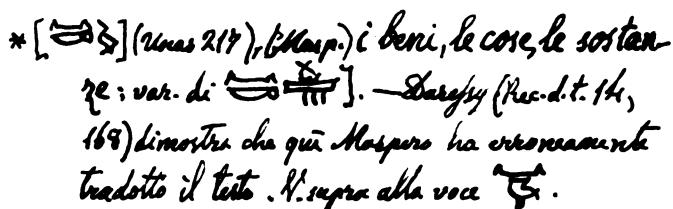 * [ ] (Unas 217), (Masp.) i beni, le cose, le sostan-
ze; var. di ]. — Daressy (Rec. d. t. 14,
168) dimostra che quì Maspero ha erroneamente
tradotto il testo. V. supra alla voce .